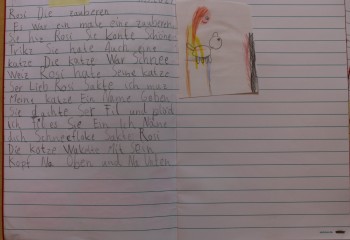 Rosi Die zauberen
Es war ein male eine zauberen
Sie hies Rosi Sie konte Schöne
Triks Sie hate Auch eine
katze Die katze War Schnee
Weiz Rosi hate Seine katze
Ser Lieb Rosi Sakte ich mus
Meine katze Ein Name Geben
Sie dachte Ser Fil und plözl
ich Fil es Sie Ein Name
Dich Schneefloke Sakte Rosi
Die katze Wakelte Mit Sein
Kopf Na Oben und Na Unten